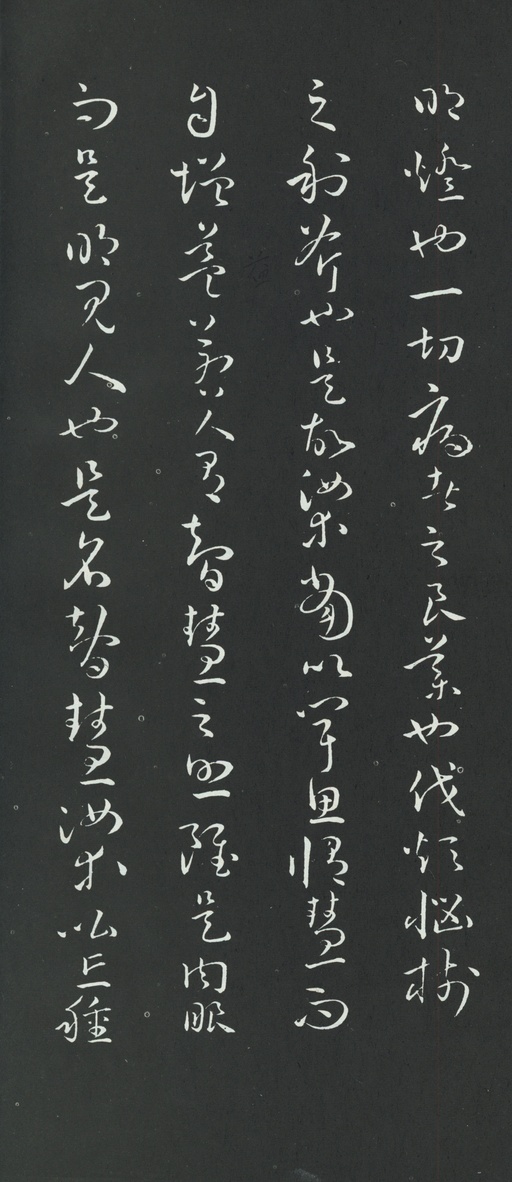 明燈也一切病者之良藥也伐煩惱樹
之利斧也是故汝等當以聞思脩慧而
自增益若人有智慧之照雖是肉眼
而是明見人也是名智慧汝等比丘種